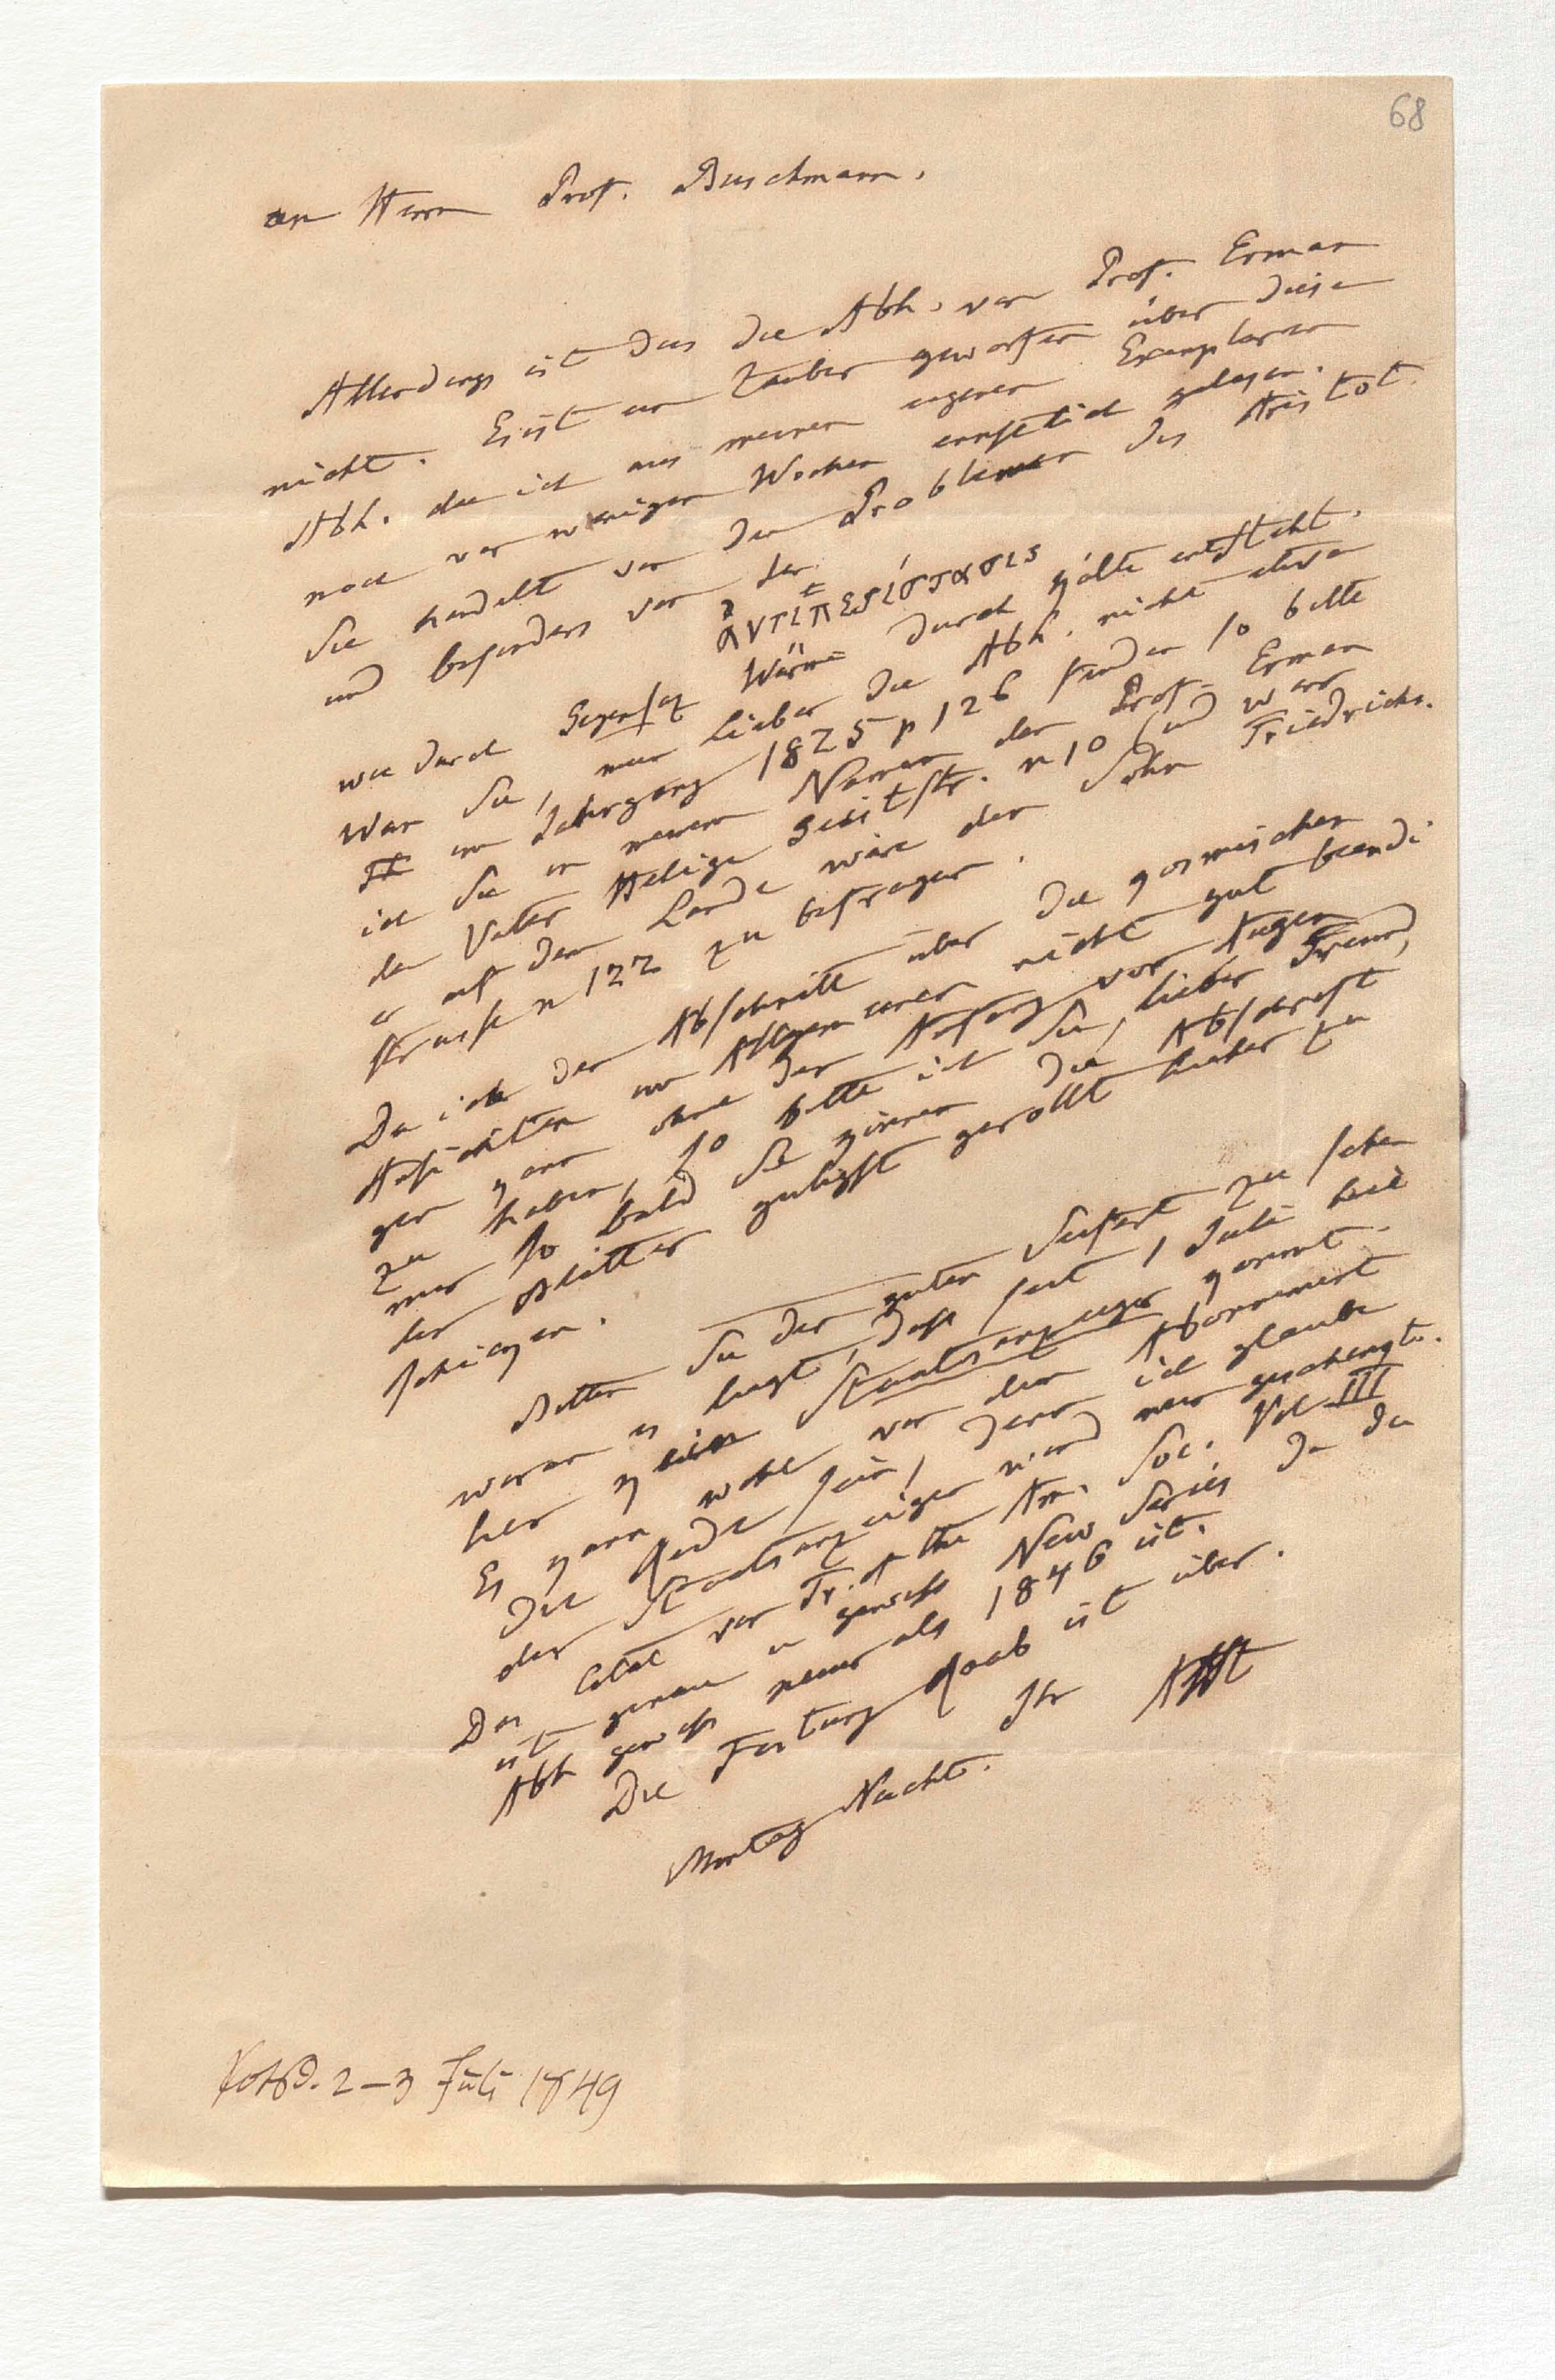 68
an Herrn Prof. Buschmann.
Allerdings ist das die Abh. von Prof. Erman
nicht. Es ist ein Zauber geworfen über diese
Abh. die ich aus meinen eigenen Exemplaren
noch vor wenigen Wochen ernstlich gelesen.
Sie handelt von den Problemen des Aristot.
und besonders von der
ἀντιπερίστασις
wie durch Gegensaz Wärme durch Kälte entsteht.
Wan Sie, mein Lieber die Abh. nicht etwa
im Jahrgang 1825 p 126 finden so bitte
ich Sie in meinem Namen den Prof. Erman
den Vater Heilige Geiststr. n 10 und wen
er auf dem Lande wäre den Sohn Friedrichs-
strasse n 122 zu befragen.
Da ich den Abschnitt über die kosmischen
Ansichten im Allgemeinen nicht gut beendi
gen kann ohne den Anfang vor Augen
zu haben, so bitte ich Sie, lieber Freund,
mir so bald Sie können die Abschrift
der Blätter gütigst gerollt hieher zu
schikken.
Bitten Sie den guten Seifert zu sehen
woran es liegt, dass seit 1 Juli hie
her kein Staatsanzeiger kommt.
Es kann wohl von dem Abonnement
die Rede sein, denn ich glaube
der Staatsanzeiger wird mir geschenkt.
Das Citat von Tr. of the Am. Soc. Vol III
ist genau u gewiss New Series da die
Abh gewiss neuer als 1846 ist.
Die Festung Raab ist über.
Ihr AHt
Montag Nacht.
Potsd. 2–3 Juli 1849